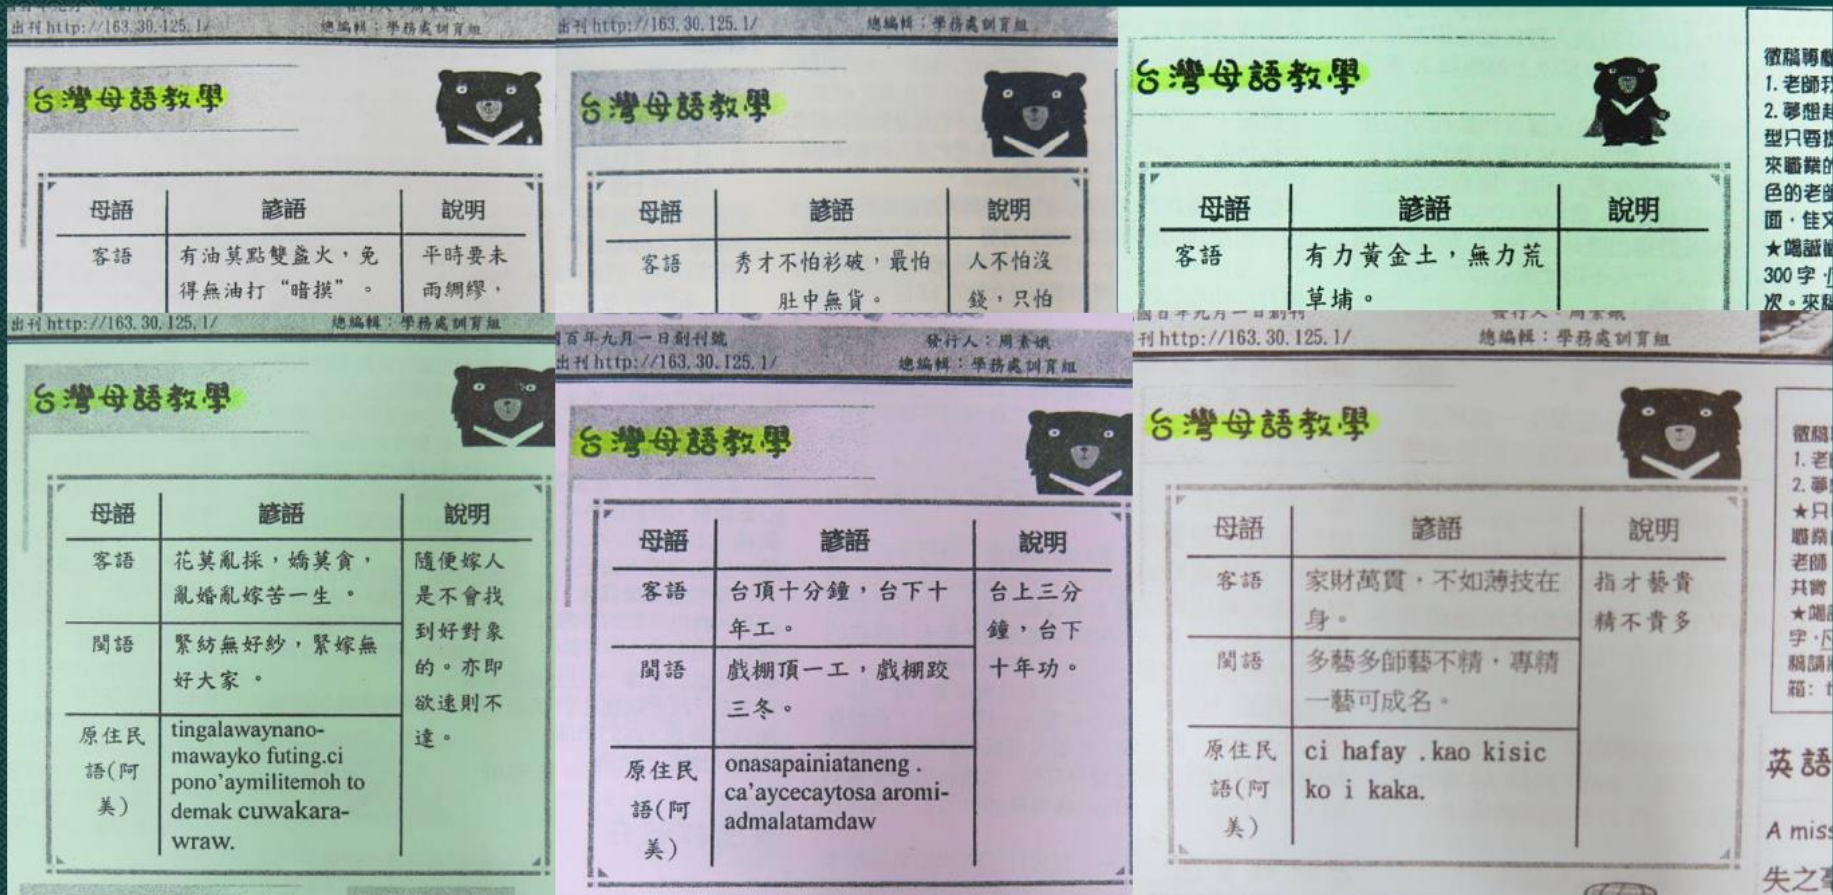 出刊 http://163.30.125.1/ 總編輯：學務處訓育組
台灣母語教學
母語 諺語 說明
客語 有油莫點雙盞火，免 平時要未
得無油打“暗摸”。 雨綢繆，
出刊 http://163.30.125.1/ 總編輯：學務處訓育組
台灣母語教學
母語 諺語 說明
客語 秀才不怕衫破，最怕 人不怕沒
肚中無貨。 錢，只怕
台灣母語教學
母語 諺語 說明
客語 有力黃金土，無力荒
草埔。
徵稿
1. 老師
2. 夢想
型只要
來職業的
色的老師
面，佳文
★竭誠
300 字
次。來稿
出刊 http://163.30.125.1/ 總編輯：學務處訓育組
台灣母語教學
母語 諺語 說明
客語 花莫亂採，嬌莫貪， 隨便嫁人
亂婚亂嫁苦一生 。 是不會找
閩語 緊紡無好紗，緊嫁無 到好對象
好大家 。 的。亦即
欲速則不
達。
原住民語(阿美)
tingalawaynano-
mawayko futing.ci
pono’aymilitemoh to
demak cuwakara-
wraw.
百年九月一日創刊號 發行人：周素娥
出刊 http://163.30.125.1/ 總編輯：學務處訓育組
台灣母語教學
母語 諺語 說明
客語 台頂十分鐘，台下十 台上三分
年工。 鐘，台下
閩語 戲棚頂一工，戲棚跤 十年功。
三冬。
原住民語(阿美)
onasapainiataneng .
ca’aycecaytosa aromi-
admalatamdaw
刊 http://163.30.125.1/ 總編輯：學務處訓育組
台灣母語教學
母語 諺語 說明
客語 家財萬貫，不如薄技在 指才藝貴
身。 精不貴多
閩語 多藝多師藝不精，專精
一藝可成名。
原住民語(阿美)
ci hafay .kao kisic
ko i kaka.
徵稿
1. 老
2. 夢
★只
職業
老師
共
★竭
字
稿請
箱：t
英語
A miss
失之